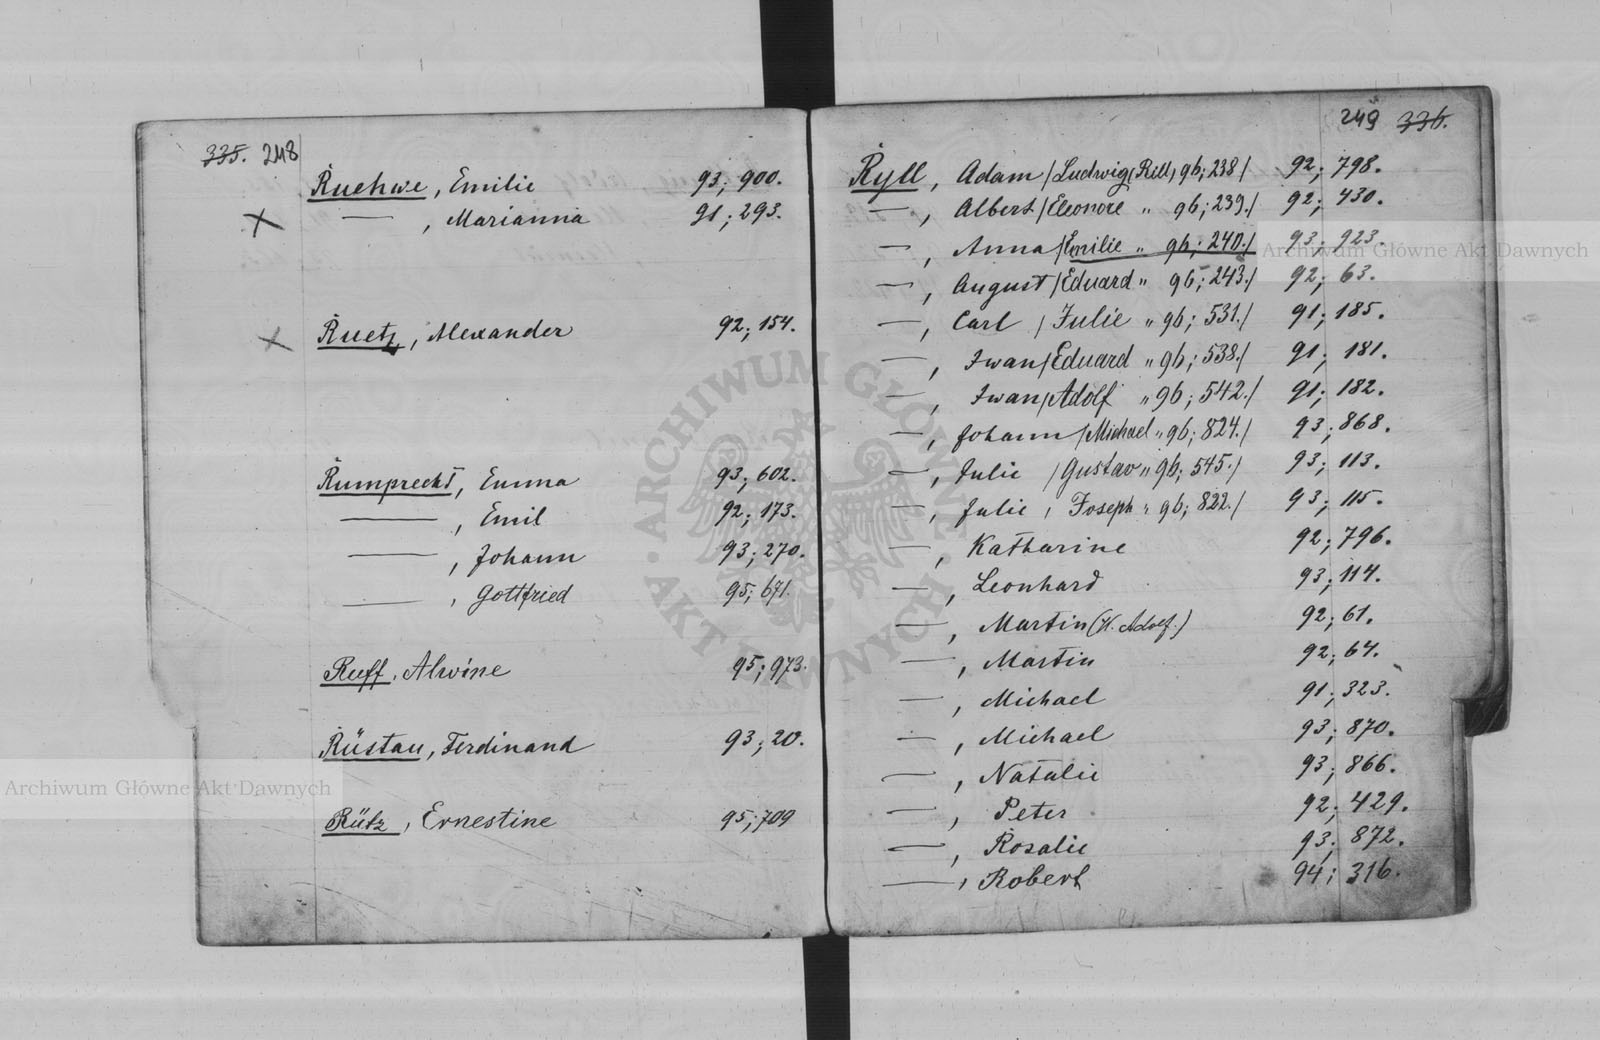 335. 248
Ruehwe, Emilie 93; 900.
X — , Marianna 91; 293.
X Ruetz, Alexander 92; 154.
Rumprecht, Emma 93; 602.
— , Emil 92; 173.
— , Johann 93; 270.
— , Gottfried 95; 671.
Ruff, Alwine 95; 973.
Rüstau, Ferdinand 93; 20.
Rütz, Ernestine 95; 709
249 336.
Ryll, Adam /Ludwig (Rill) 96; 238/ 92; 798.
— , Albert /Eleonore " 96; 239./ 92; 430.
— , Anna /Emilie " 96; 240./ 93; 923.
— , August /Eduard " 96; 243./ 92; 63.
— , Carl /Julie " 96; 531./ 91; 185.
— , Iwan /Eduard " 96; 538./ 91; 181.
— , Iwan /Adolf " 96; 542./ 91; 182.
— , Johann /Michael " 96; 824./ 93; 868.
— , Julie /Gustav " 96; 545./ 93; 113.
— , Julie , Joseph " 96; 822./ 93; 115.
— , Katharine 92; 796.
— , Leonhard 93; 114.
— , Martin (H. Adolf.) 92; 61.
— , Martin 92; 64.
— , Michael 91; 323.
— , Michael 93; 870.
— , Natalie 93; 866.
— , Peter 92; 429.
— , Rosalie 93; 872.
— , Robert 94; 316.
ARCHIWUM GŁÓWNE AKT DAWNYCH
Archiwum Główne Akt Dawnych
Archiwum Główne Akt Dawnych